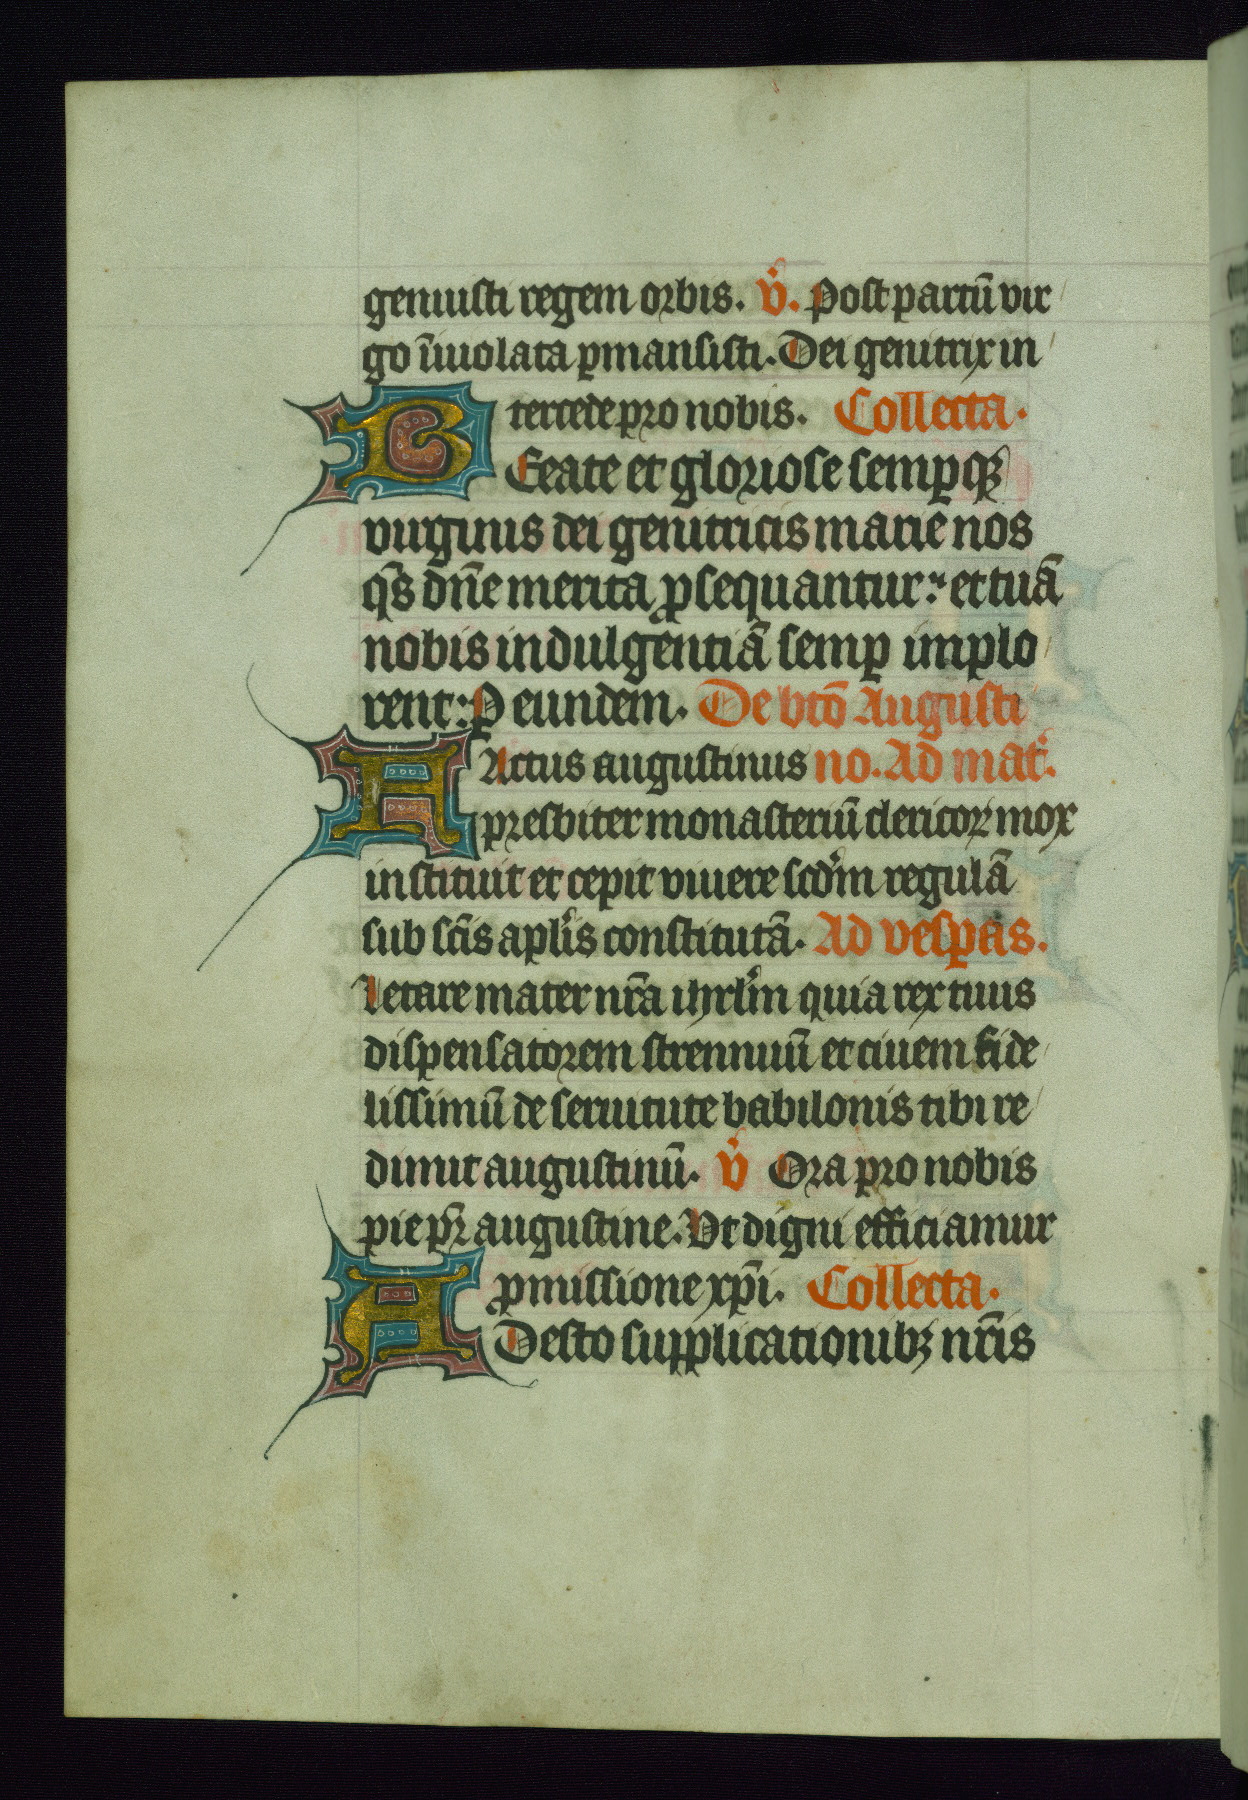 genuisti regem orbis. v̊. Post partū vir
go īuiolata ꝑmansisti. Dei genitrix in
tercede pro nobis. Collecta.
BEeate et gloriose sempꝙꝫ
virginis dei genitricis marie nos
q̄s dn̄e merita ꝓsequantur: et tuā
nobis indulgentiā semꝑ implo
rent: P eundem. De bt̄o Augusti
FActus augustinus no. Ad mat̉.
presbiter monasteriū clericoꝝ mox
instituit et cepit viuere scd̉m regulā
sub sc̄is apl̉is constitutā. Ad vesꝑas.
Letare mater nr̄a ihrl̉m quia rex tuus
dispensatorem strennuū et ciuem fide
lissimū de seruitute babilonis tibi re
dimit augustinū. v̊ Ora pro nobis
pie pr̄ augustine. Vt digni efficiamur
ꝓmissione xp̄i. Collecta.
ADesto supplicationibꝫ nr̄is